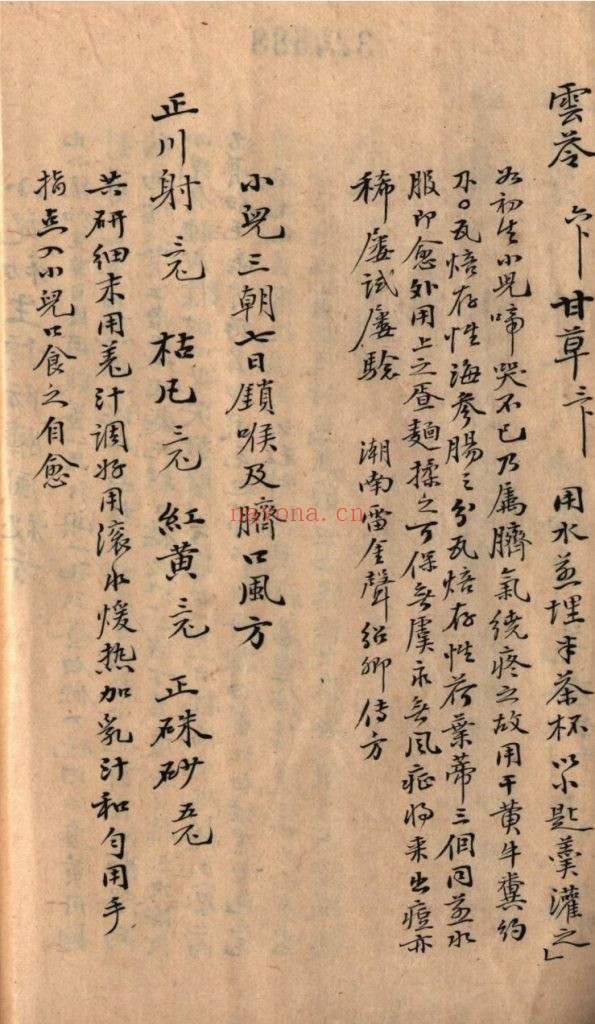 雲苓 六卜 甘草 三卜 用水並埋半茶杯以小匙羹灌之
如初生小兒啼哭不已乃屬臍氣繞疼之故用干黃牛糞約
瓦焙存性海參腸三分瓦焙存性荷葉蒂三個同並水
服即愈外用上之昼麵揉之可保無虞永無風症將來出痘亦
稀屡試屡驗 潮南雷金聲紹卿傳方
小兒三朝七日鎖喉及臍口風方
正川射 枯凡 紅黃 正硃砂
共研細末用羌汁調好用滾水煖热加乳汁和勻用手
指点入小兒口食之自愈
nayona.cn